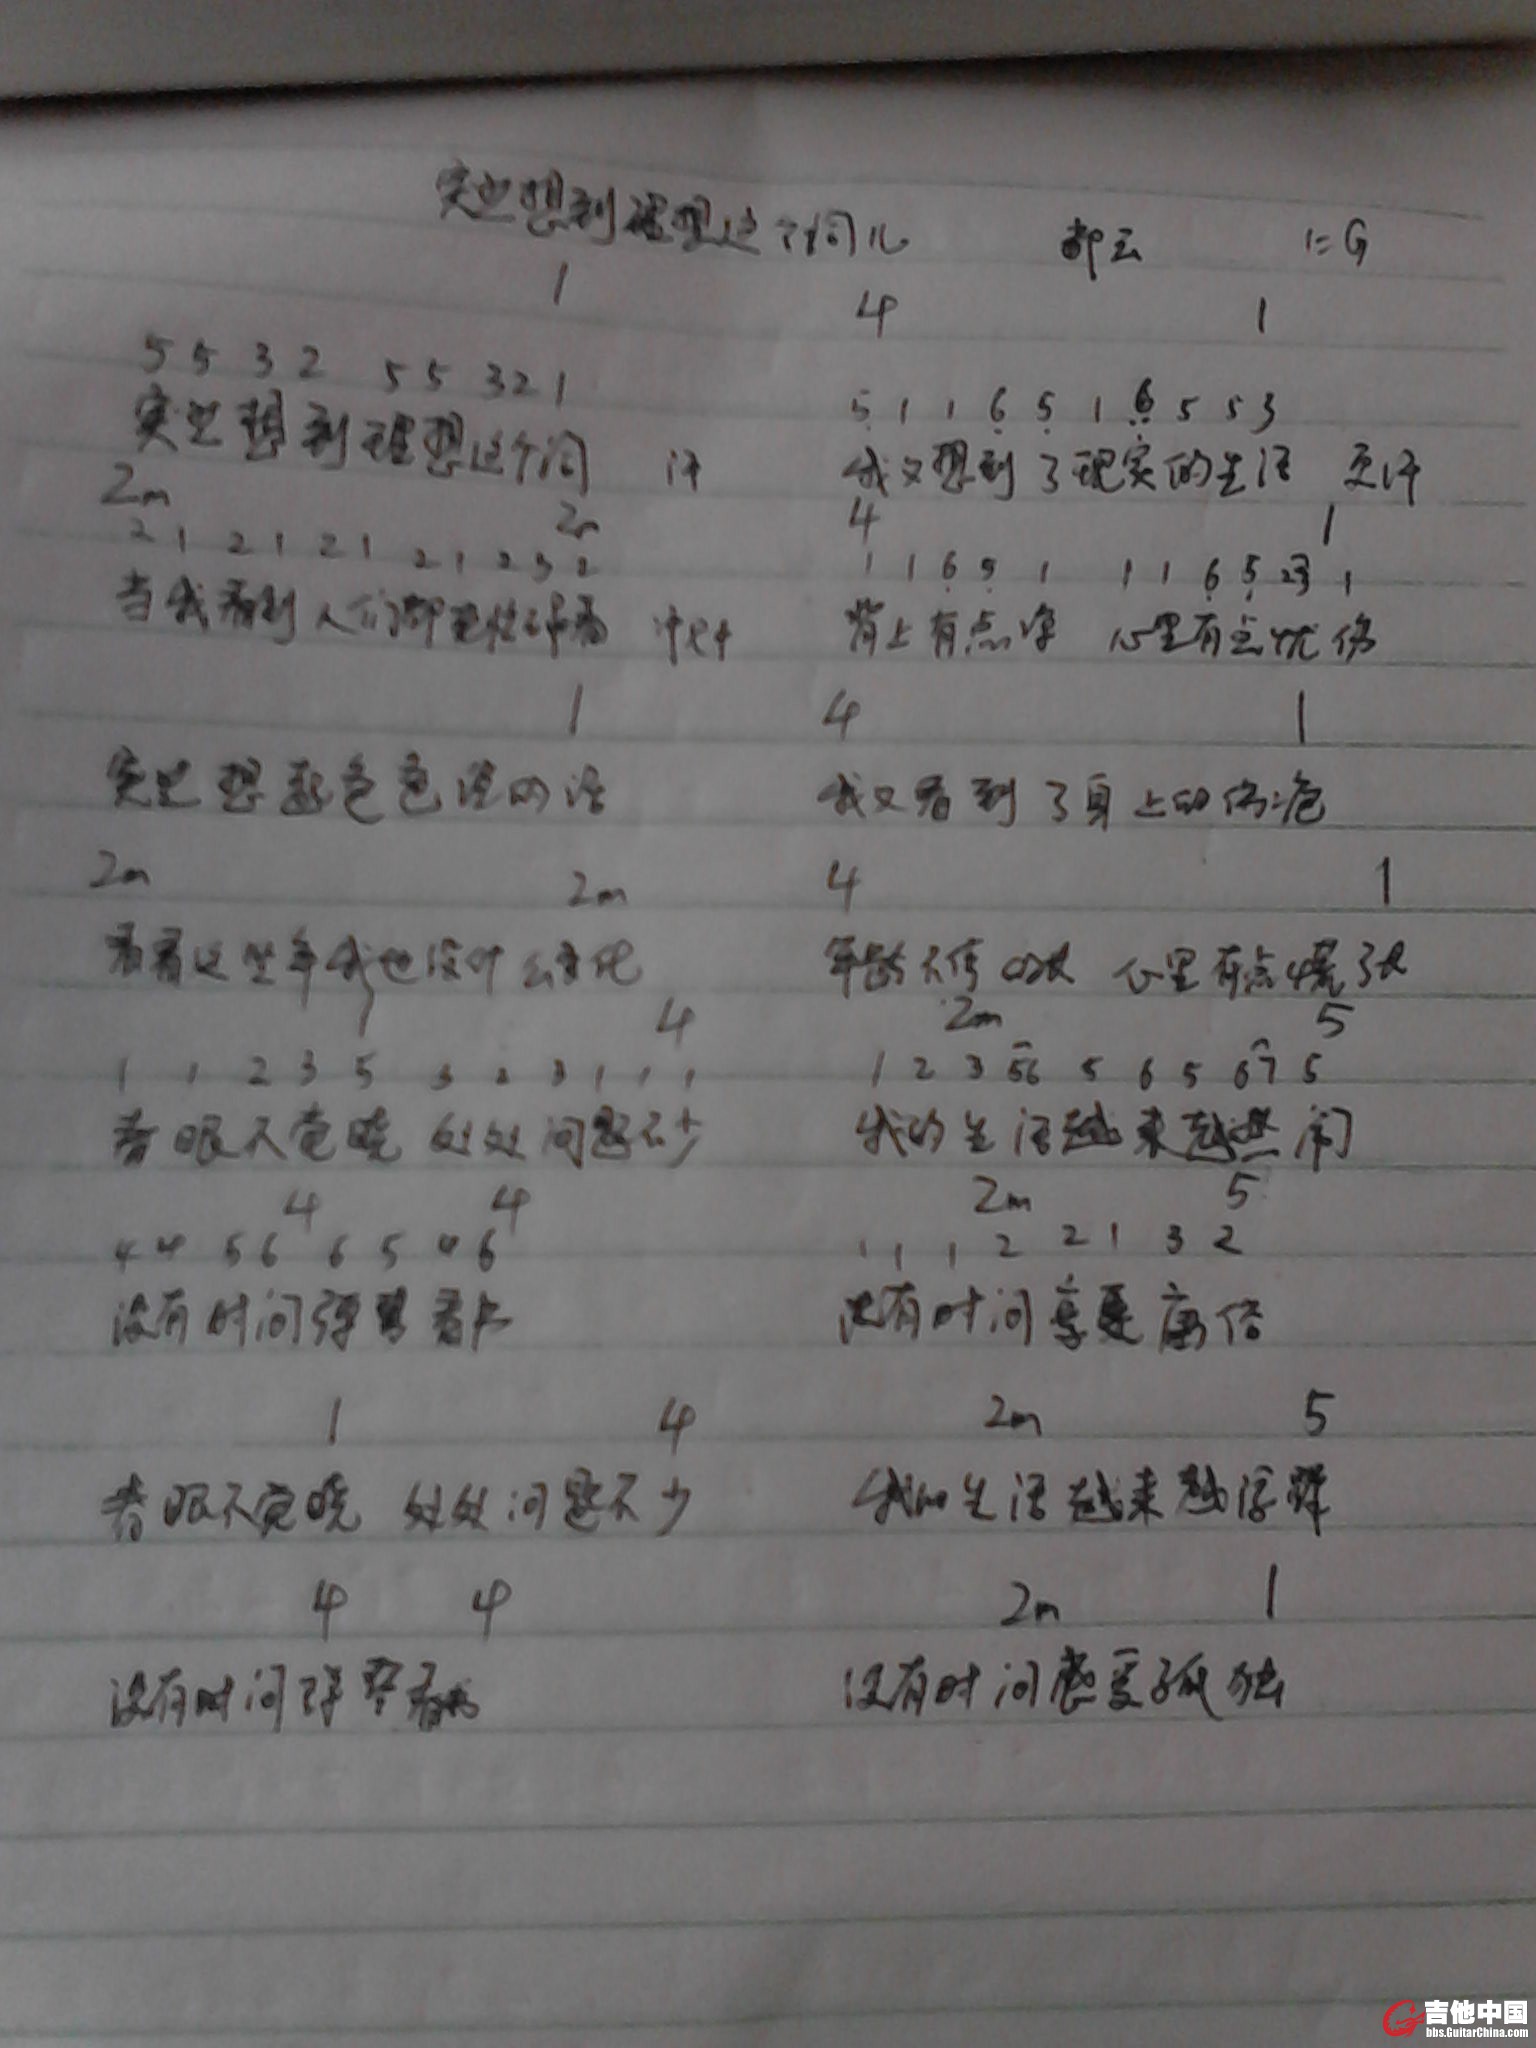 突然想到理想这个词儿 郝云 1=G
1 4 1
5 5 3 2 5 5 3 2 1 5 1 1 6 5 1 6 5 5 3
突然想到理想这个词 汗 我又想到了现实的生活 更汗
2m 2m 4 1
2 1 2 1 2 1 2 1 2 3 2 1 1 6 5 1 1 1 6 5 23 1
当我看到人们都 背上有点 心里有点忧伤
1 4 1
突然想起爸爸说的话 我又看到了身上的伤疤
2m 2m 4 1
看看这些年我也没什么变化 年龄不停的长 心里有点慌张
1 4 2m 5
1 1 2 3 5 3 2 3 1 1 1 1 2 3 56 5 6 5 67 5
春眠不觉晓 处处问题不少 我的生活越来越热闹
4 4 2m 5
4 4 5 6 6 5 4 6 1 1 1 2 2 1 3 2
没有时间弹琴看书 没有时间享受
1 4 2m 5
春眠不觉晓 处处问题不少 我的生活越来越浮躁
4 4 2m 1
没有时间弹琴看书 没有时间感受孤独
吉他中国
bbs.GuitarChina.com